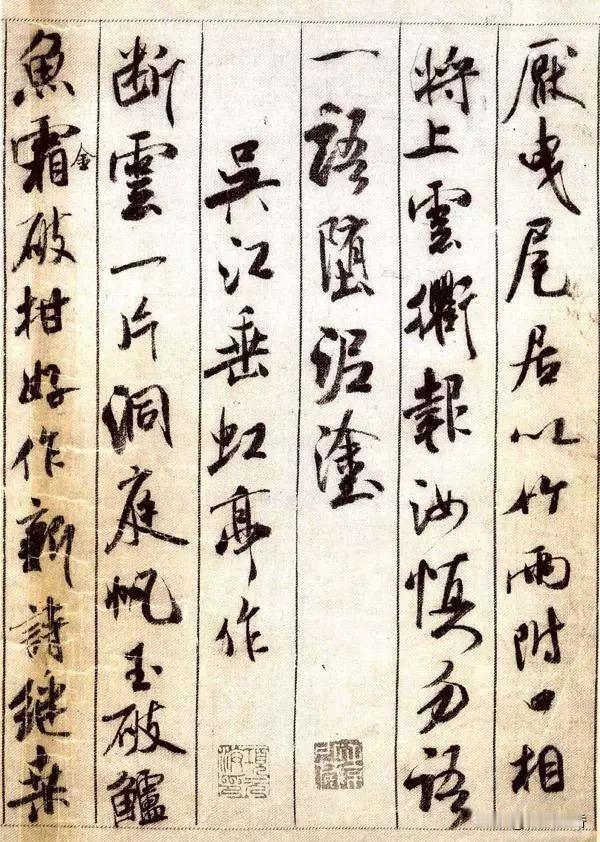 厭曳尾居以竹兩附口相
将上雲衢報汝慎勿語
一語堕泥塗
吳江垂虹亭作
断雲一片洞庭帆玉破鱸
魚霜金破柑好作新詩継桑